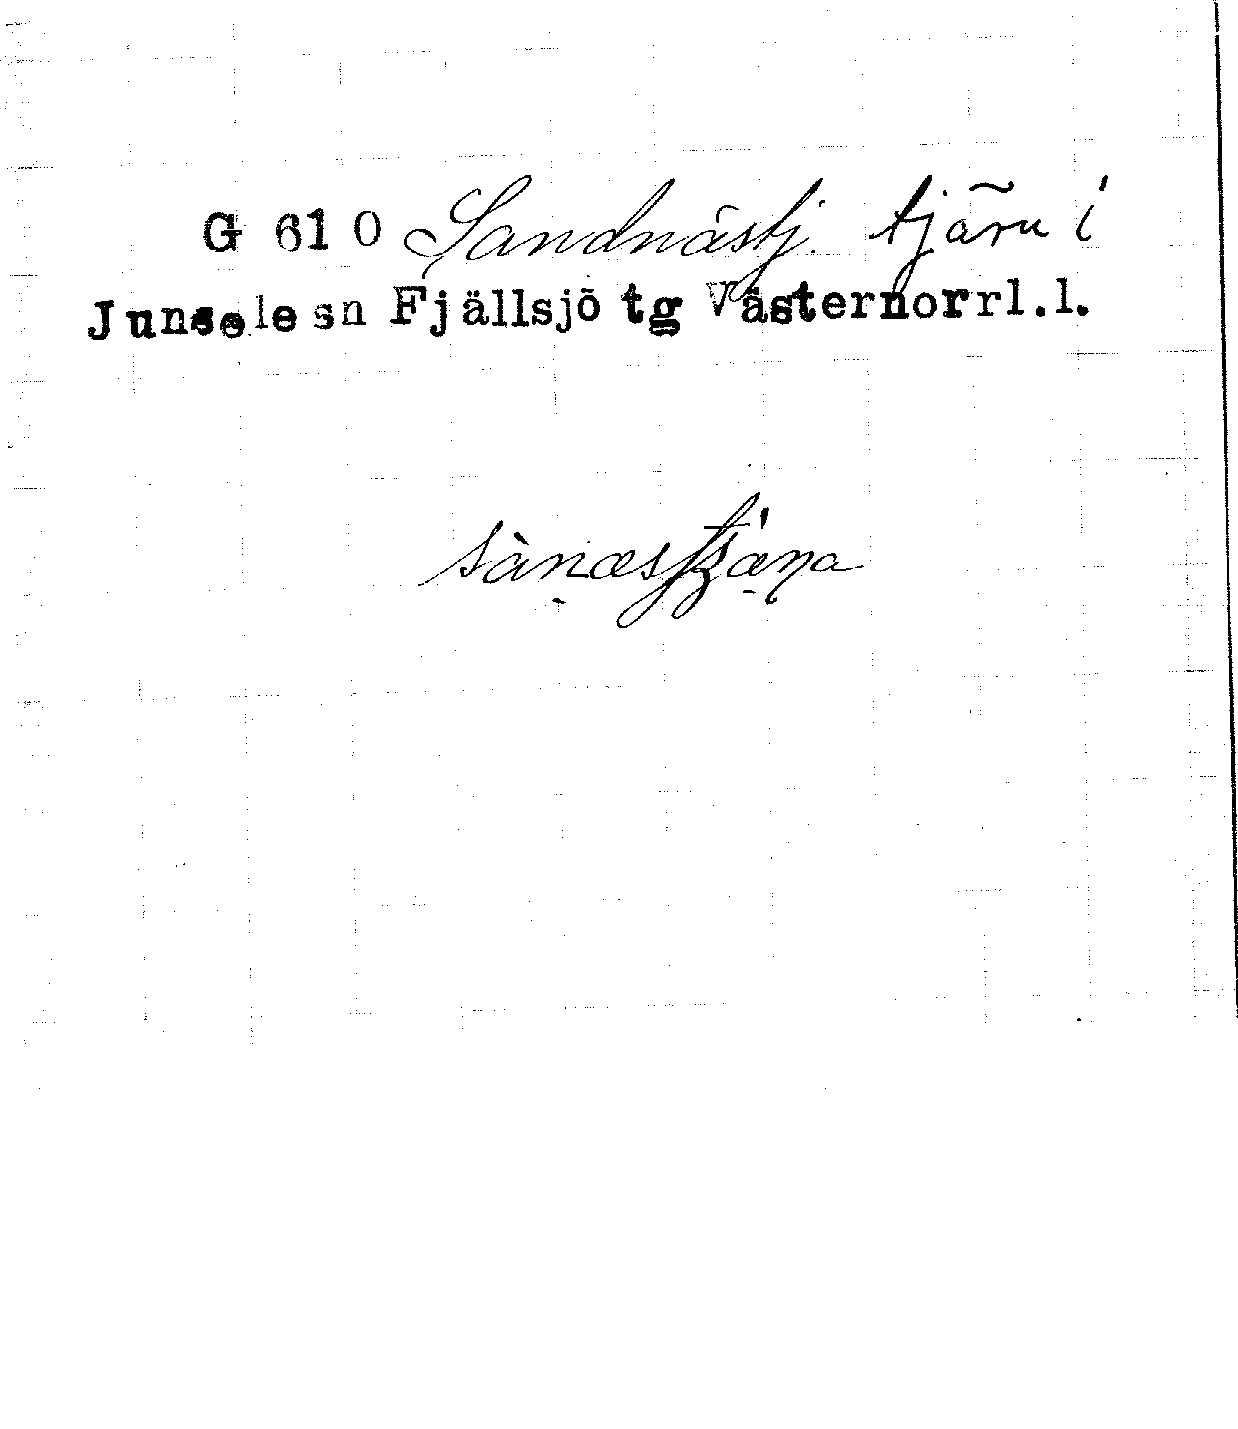 G 610 Sandnästj. tjärn i
Junsele sn Fjällsjö tg Västernorrl.l.
sànæstjæ̀ṇa